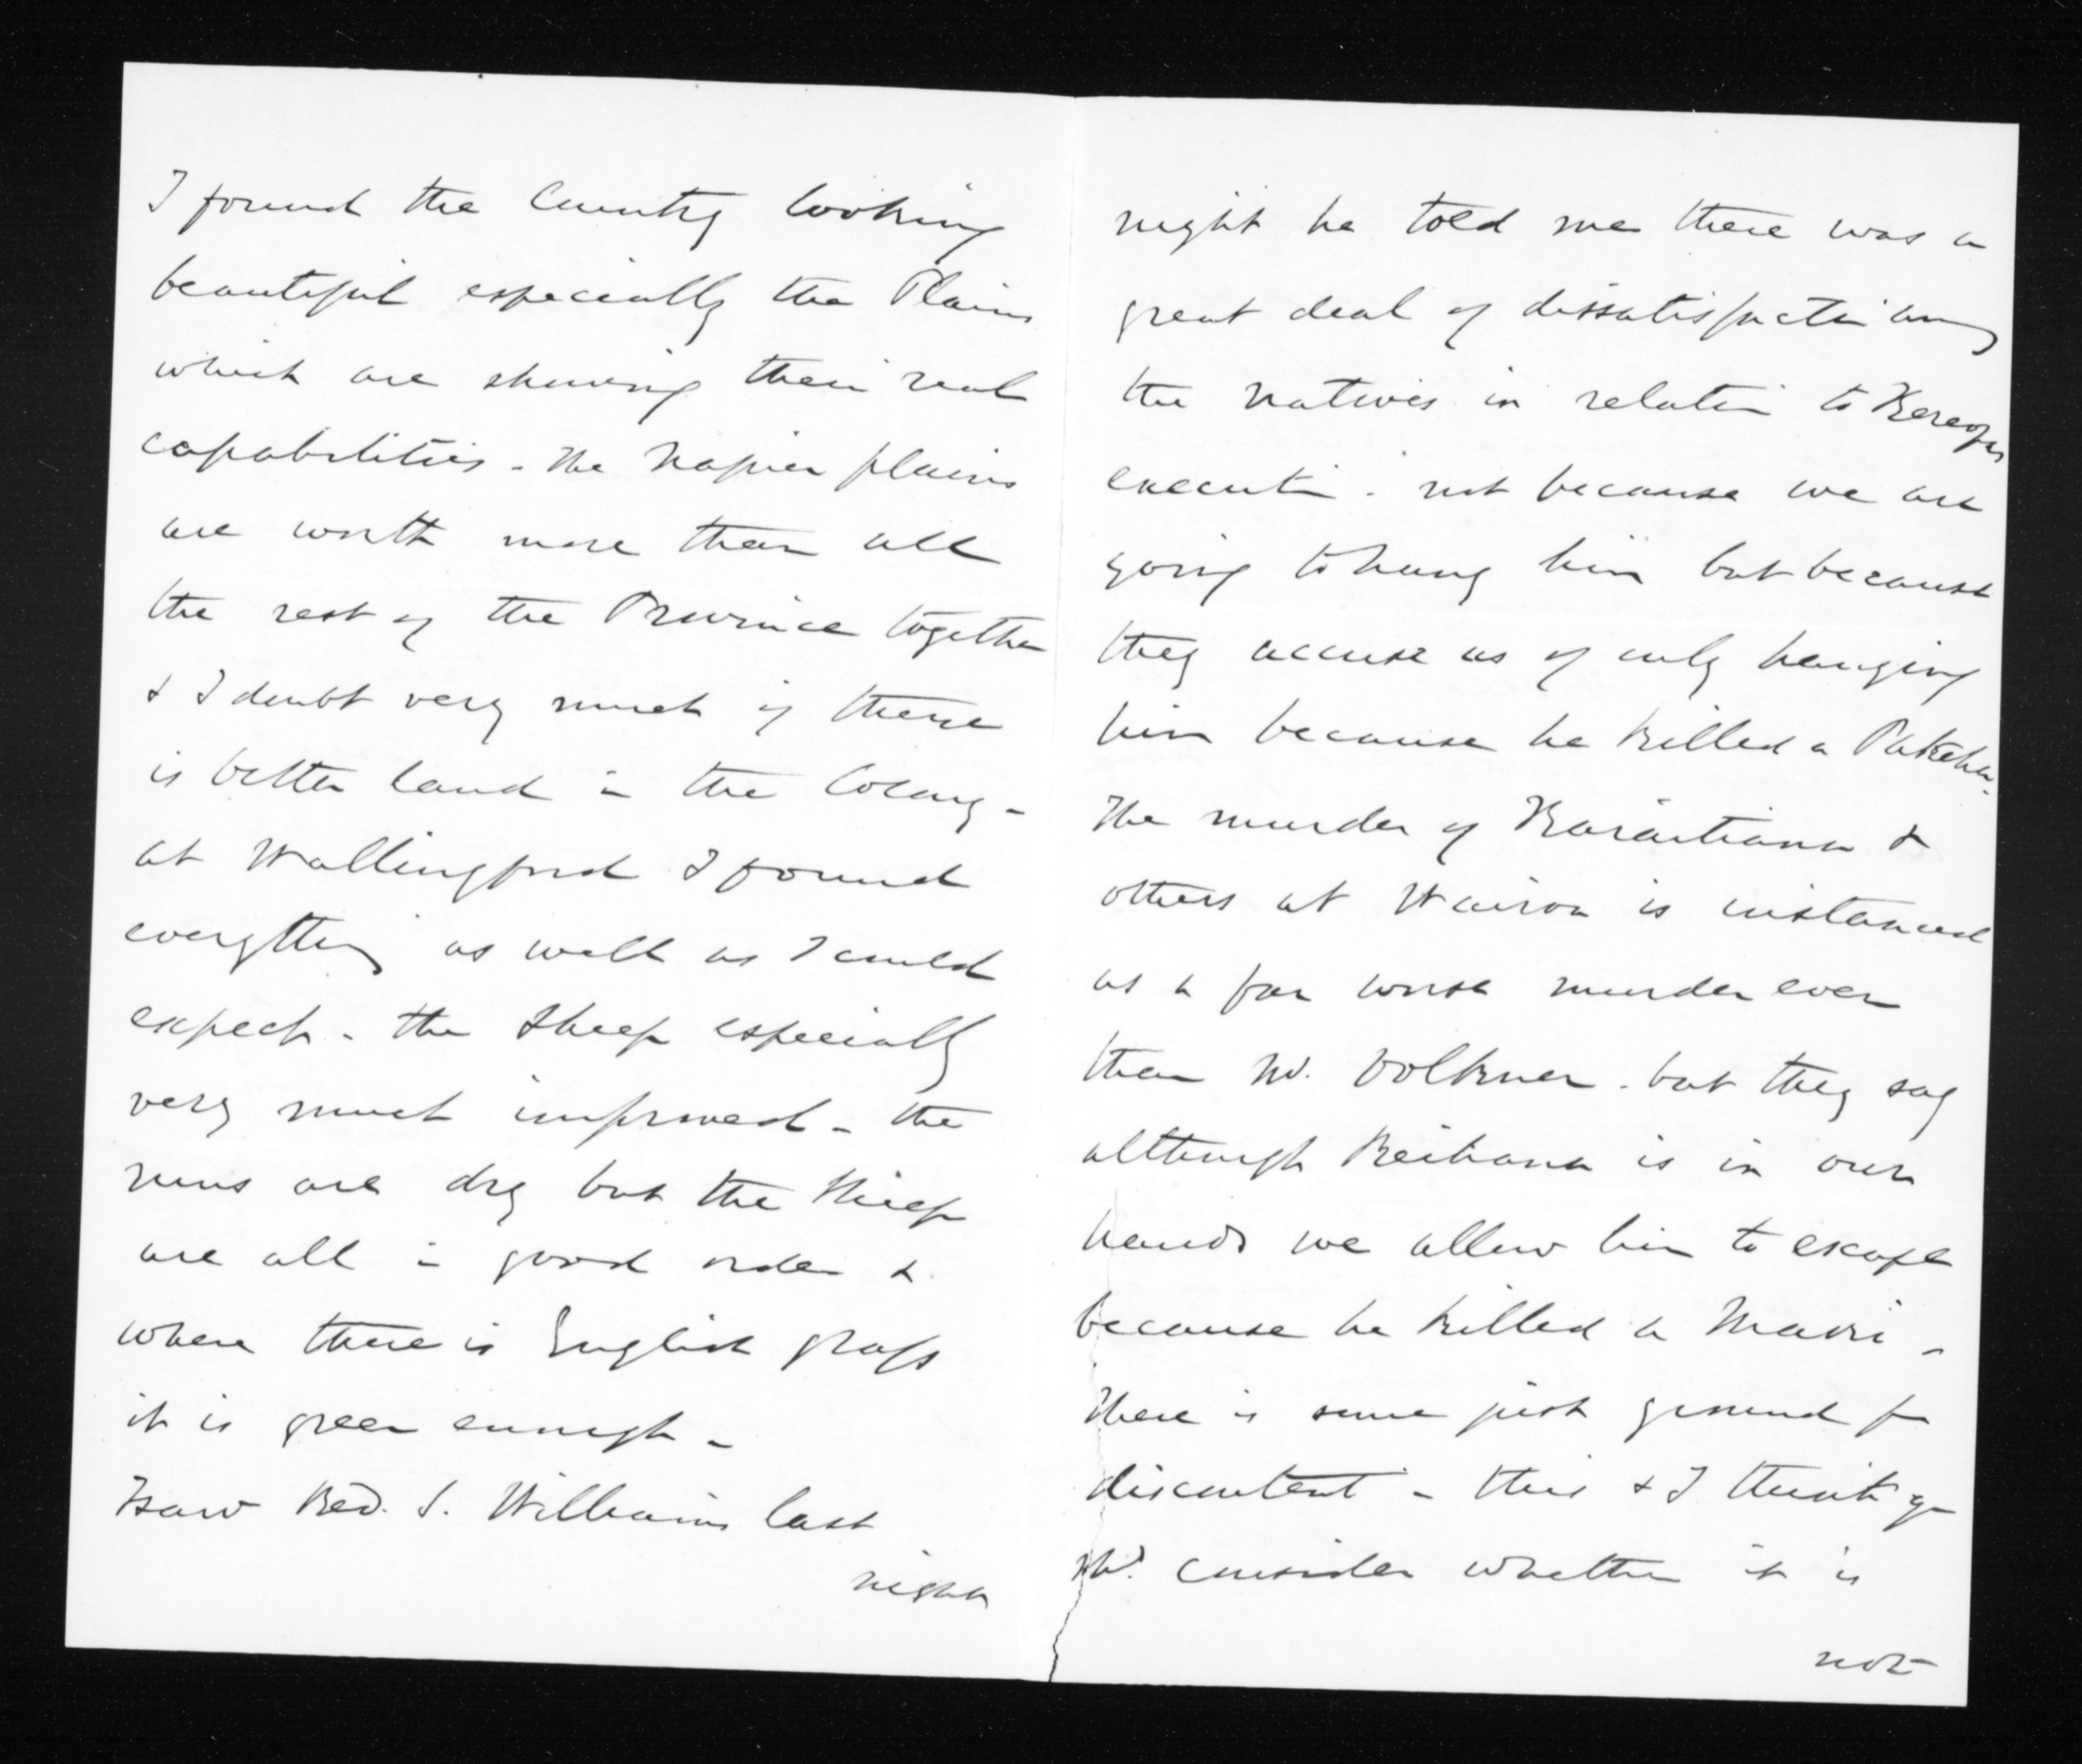 I found the Country looking
beautiful especially the Plains
which are shewing their real
capabilities - The Napier plains
are worth more than all
the rest of the Province together
& I doubt very much if there
is better land in the Colony -
at Wallingford I found
everything as well as I could
expect - the Sheep especially
very much improved - the
runs are dry but the Sheep
are all in good order &
where there is English grass
it is green enough -
I saw Revd. S. Williams last
night
night he told me there was a
great deal of dissatisfaction among
the natives in relation to Kereopa's
execution - not because we are
going to hang him but because
they accuse us of only hanging
him because he killed a Pakeha -
The murder of Karaitiana &
others at Wairoa is instanced
as a far worse murder even
than Mr. Volkner - but they say
although Reihana is in our
hands we allow him to escape
because he killed a Maori -
There is some just ground for
discontent - this & I think you
shd. consider whether it is
not